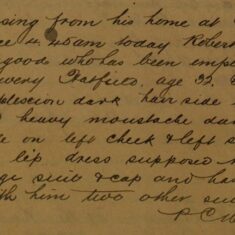 sing from his home at
ce 4.45am today Robert
goods who has been empl
wery Hatfield, age 32,
plexion dark hair side
heavy moustache da
e on left cheek & left s
lip dress supposed
ge suit & cap and ha
ith him two other su
P.C.